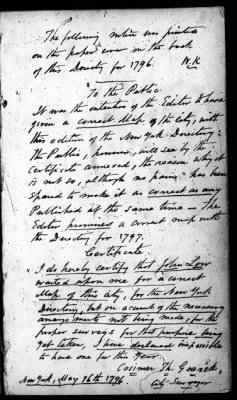 The following notice was printed
on the paper cover on the back
of this Directy for 1796.
W.K
To the Public
It was the intention of the Editor to have
given a correct Map of the city, with
this edition of the New York Directory:
the Public, however, will see by the
Certificate annexed, the reason why it
is not so, although no pains has been
spared to make it as correct as any
Published at the same time — The
Editor promises a correct map with
the Directory for 1797.
Certificate.
I do hereby certify that John Low
waited upon me for a correct
Map of this City, for the New York
Directory, but on account of the necessary
arrangements not being made, for the
proper surveys for that purpose being
yet taken, I have declared impossible
to have one for this year
Casimer Th. Goerck,
City Surveyor
New York, May 16th 1796